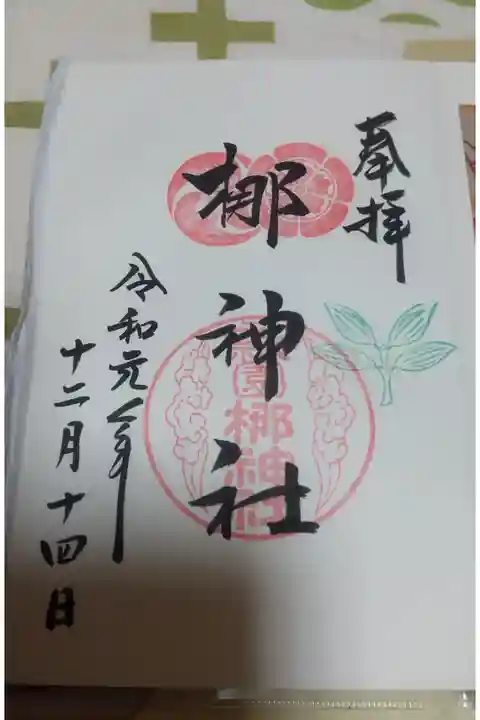 奉拝
梛神社
園梛神社
令和元年
十二月十四日